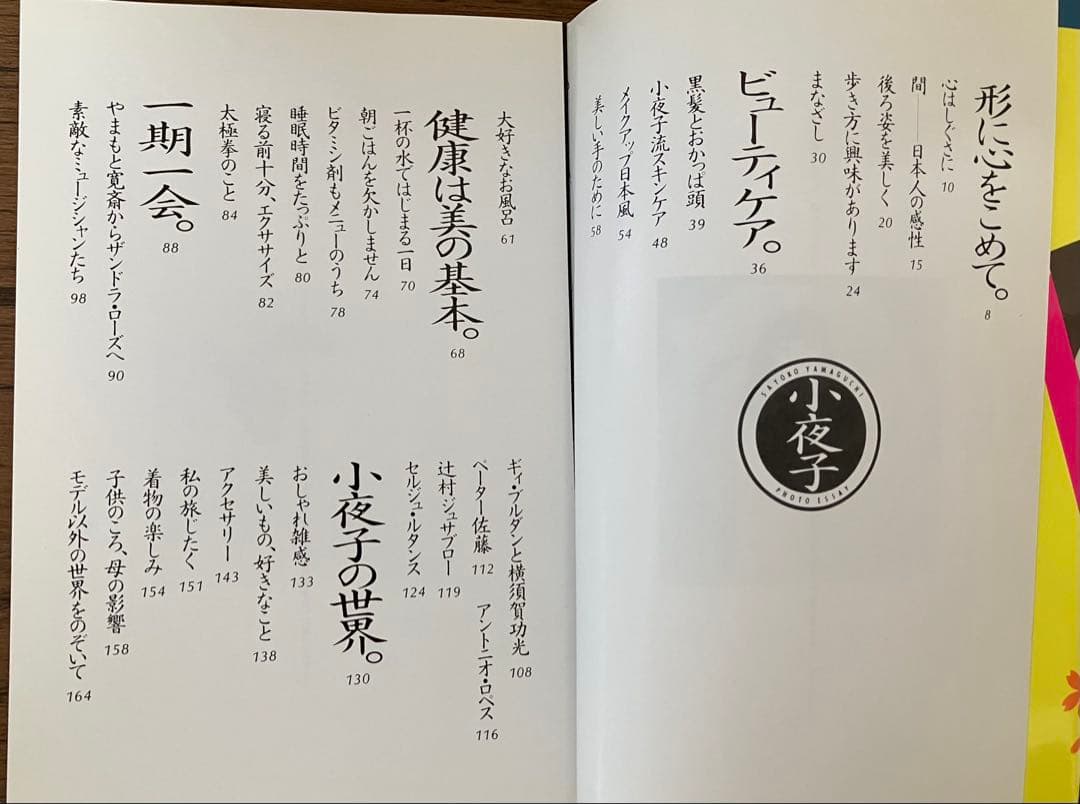 形に心をこめて。 8
心はしぐさに 10
間——日本人の感性 15
後ろ姿を美しく 20
歩き方に興味があります 24
まなざし 30
ビューティケア。 36
黒髪とおかっぱ頭 39
小夜子流スキンケア 48
メイクアップ日本風 54
美しい手のために 58
SAYOKO YAMAGUCHI
小夜子
PHOTO ESSAY
大好きなお風呂 61
健康は美の基本。 68
一杯の水ではじまる一日 70
朝ごはんを欠かしません 74
ビタミン剤もメニューのうち 78
睡眠時間をたっぷりと 80
寝る前十分、エクササイズ 82
太極拳のこと 84
一期一会。 88
やまもと寛斎からザンドラ・ローズへ 90
素敵なミュージシャンたち 98
ギイ・ブルダンと横須賀功光 108
ペーター佐藤 112 アントニオ・ロペス 116
辻村ジュサブロー 119
セルジュ・ルタンス 124
小夜子の世界。 130
おしゃれ雑感 133
美しいもの、好きなこと 138
アクセサリー 143
私の旅じたく 151
着物の楽しみ 154
子供のころ、母の影響 158
モデル以外の世界をのぞいて 164